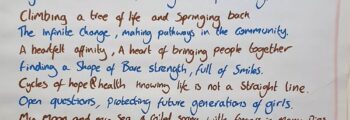 Climbing a tree of life and springing back
The Infinite Change, making pathways in the community.
A heartfelt affinity, A heart of bringing people together
finding a Shape of Bare strength, full of Smiles.
Cycles of hope & health knowing life is not a Straight line.
Open questions, protecting future generations of girls.